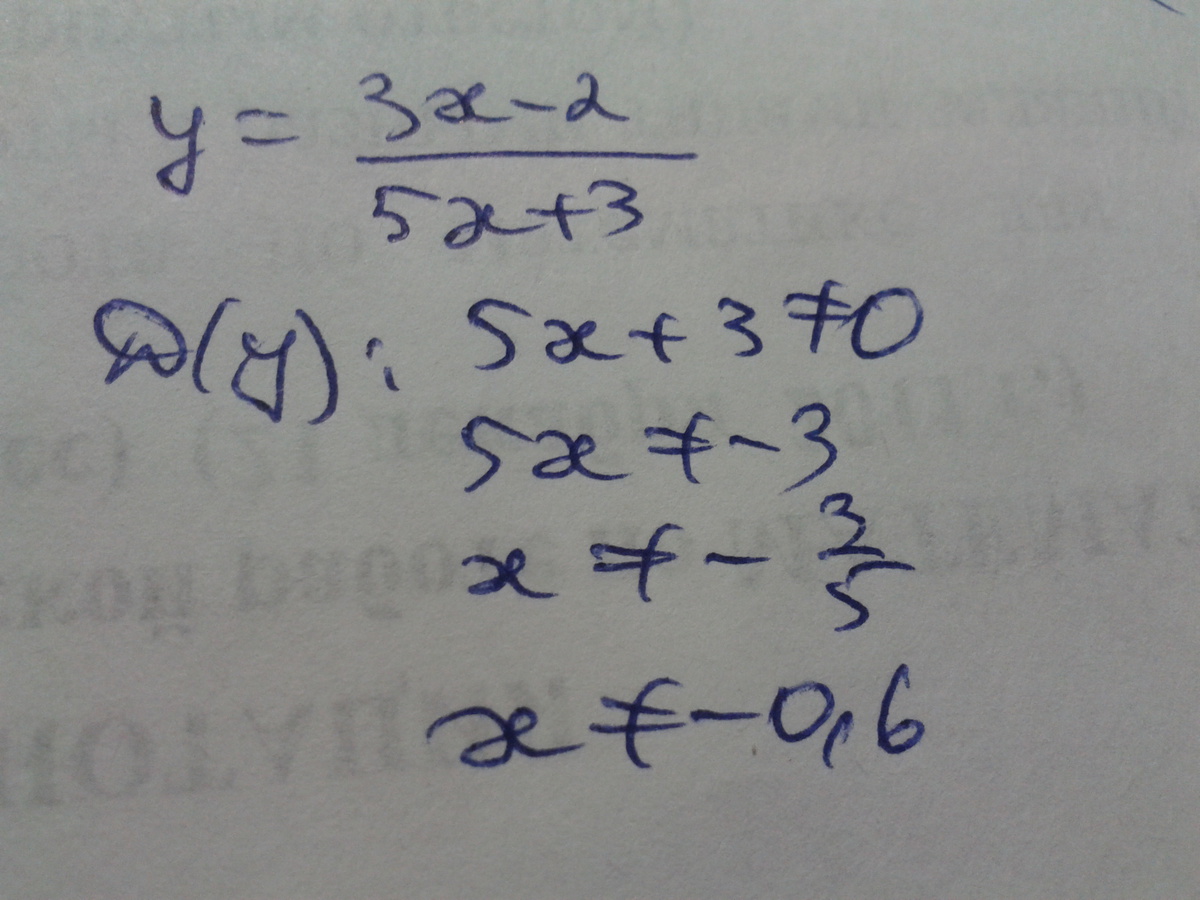 y = \frac{3x-2}{5x+3}
D(y): 5x + 3 ≠ 0
5x ≠ -3
x ≠ - \frac{3}{5}
x ≠ -0,6